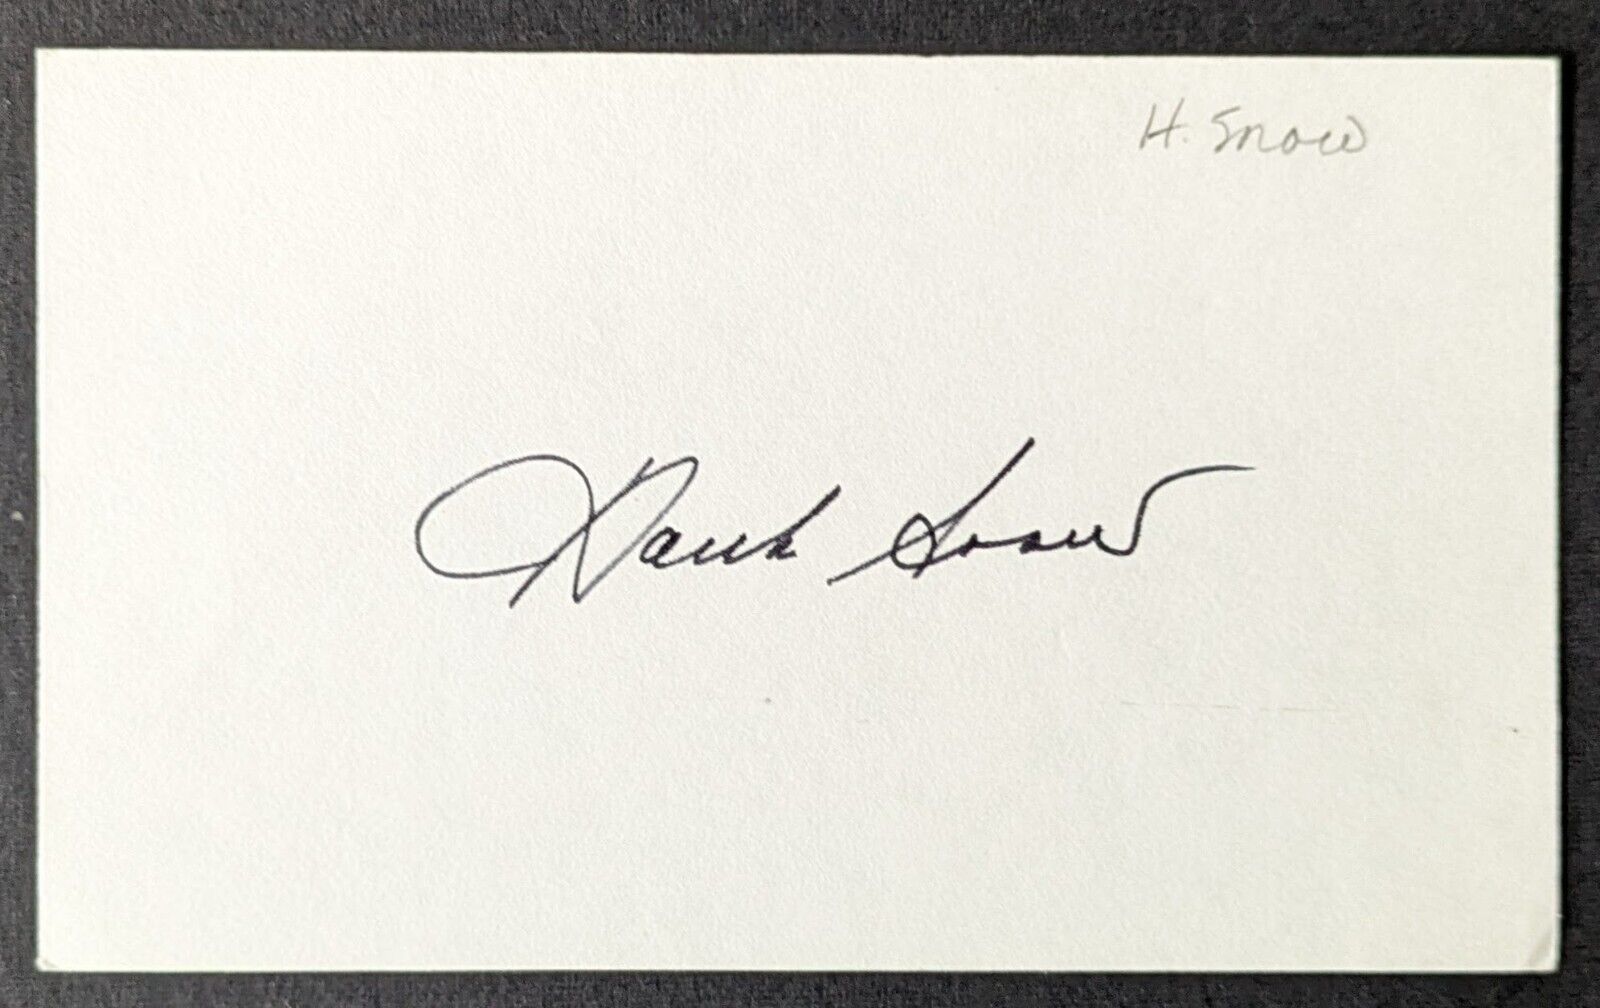 H. Snow
Hank Snow